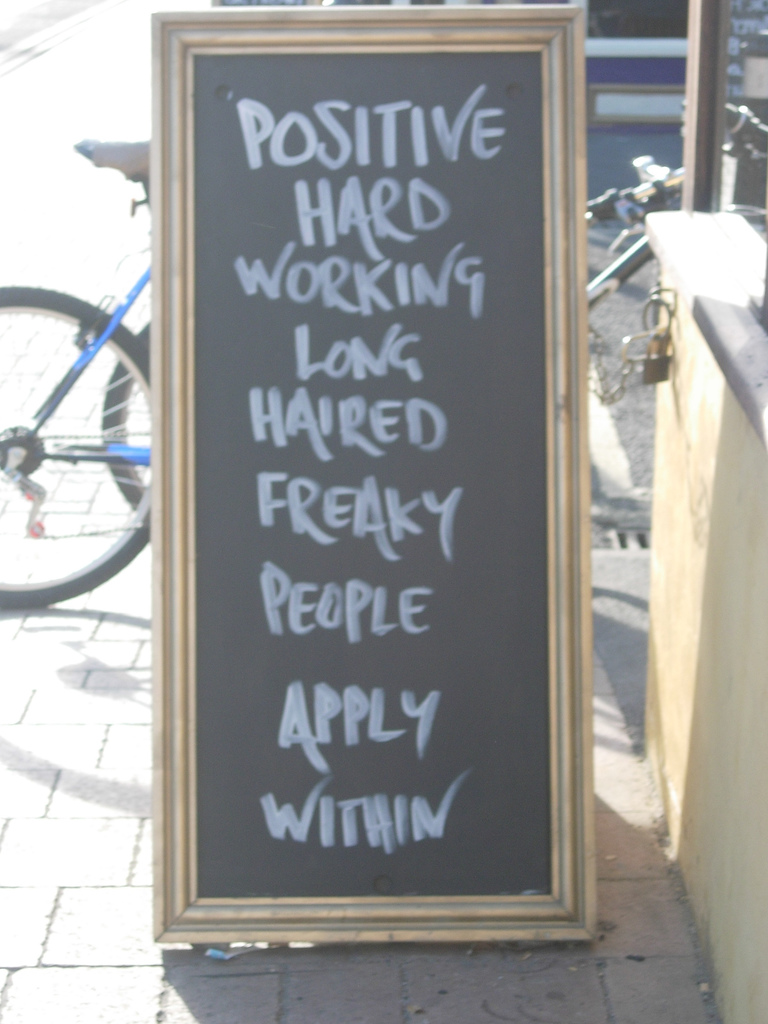 POSITIVE
HARD
WORKING
LONG
HAIRED
FREAKY
PEOPLE
APPLY
WITHIN